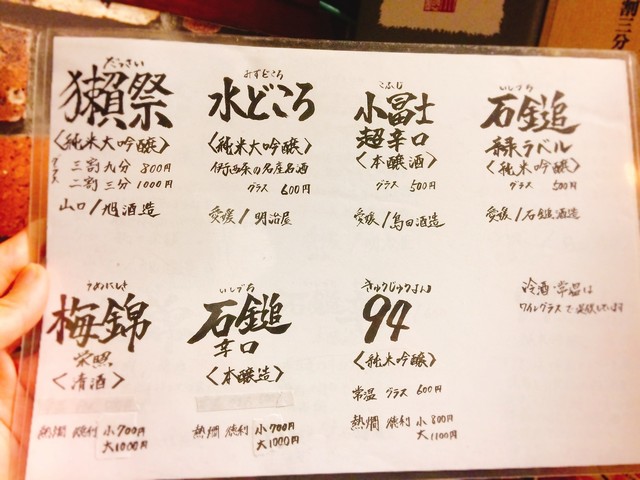 だっさい
獺祭
〈純米大吟醸〉
グラス 三割九分 800円
二割三分 1000円
山口/旭酒造
みずどころ
水どころ
〈純米大吟醸〉
伊予西条の名産名酒
グラス 600円
愛媛/明治屋
こふじ
小冨士
超辛口
〈本醸酒〉
グラス 500円
愛媛/島田酒造
いしづち
石鎚
緑ラベル
〈純米吟醸〉
グラス 500円
愛媛/石鎚酒造
うめにしき
梅錦
栄照
〈清酒〉
熱燗 徳利 小700円
大1000円
いしづち
石鎚
辛口
〈本醸造〉
熱燗 徳利 小700円
大1000円
きゅうじゅうよん
94
〈純米吟醸〉
常温 グラス 600円
熱燗 徳利 小800円
大1100円
冷酒・常温は
ワイングラスで提供しています
割三分